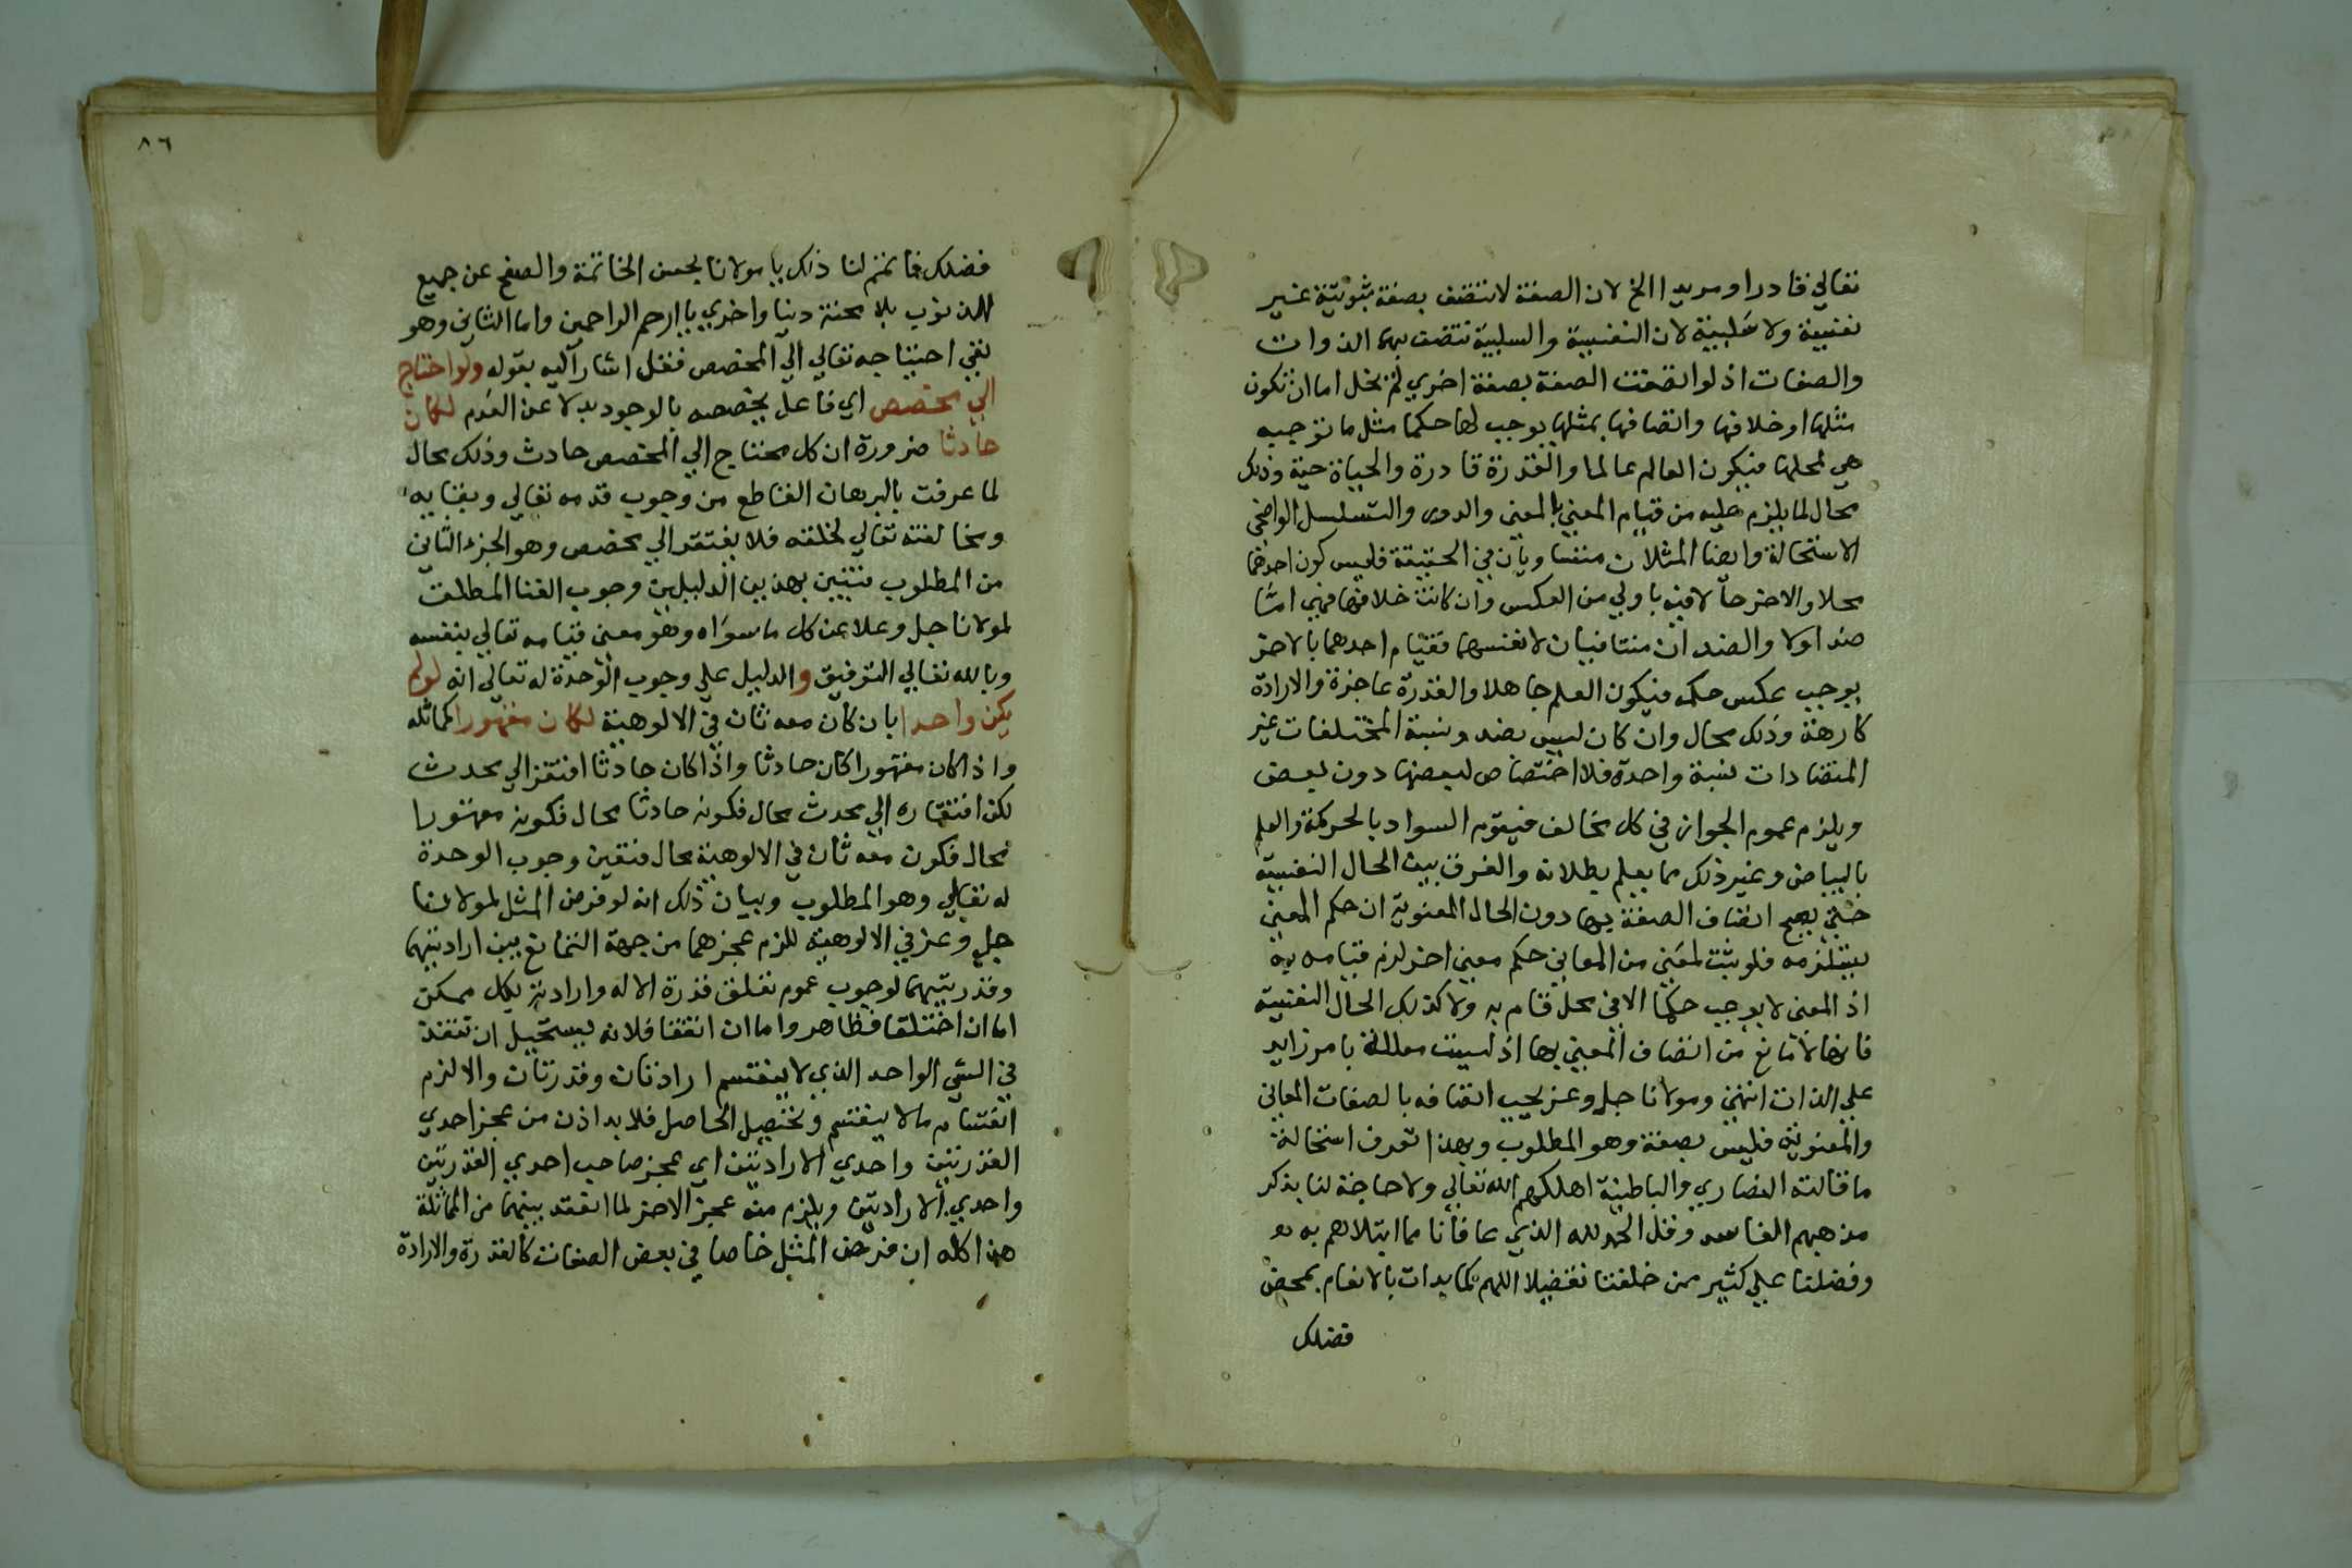 تعالي قادرا ومريدا الخ لان الصفة لا تتصف بصفة ثبوتية غير
نفسية ولا سلبية لان النفسية والسلبية تتصف بهما الذوات
والصفات اذ لو اتصفت الصفة بصفة اخري لم يخل اما ان تكون
مثلها او خلافها واتصافها بمثلها يوجب لها حكما مثل ما توجبه
هي لمحلها فيكون العالم عالما والقدرة قادرة والحياة حية وذلك
محال لما يلزم عليه من قيام المعني بالمعني والدور والتسلسل الواضحي
الاستحالة وايضا المثلان متساويان في الحقيقة فليس كون احدهما
محلا والاخر حالا فيه باولي من العكس وان كانت خلافها فهي اما
ضد اولا والضدان متنافيان لانفسهما فقيام احدهما بالاخر
يوجب عكس حكمه فيكون العلم جاهلا والقدرة عاجزة والارادة
كارهة وذلك محال وان كان ليس بضد ونسبة المختلفات غير
المتضادات نسبة واحدة فلا اختصاص لبعضها دون بعض
ويلزم عموم الجواز في كل مخالف فيقوم السواد بالحركة والعلم
بالبياض وغير ذلك مما يعلم بطلانه والفرق بين الحال النفسية
حتي يصح اتصاف الصفة بها دون الحال المعنوية ان حكم المعني
يستلزمه فلو ثبت لمعني من المعاني حكم معني اخر لزم قيامه به
اذ المعني لا يوجب حكما الا في محل قام به ولا كذلك الحال النفسية
فانها لا مانع من اتصاف المعني بها اذ ليست معللة بامر زايد
علي الذات انتهي ومولانا جل وعز يجب اتصافه بالصفات المعاني
والمعنوية فليس بصفة وهو المطلوب وبهذا تعرف استحالة
ما قالته النصاري والباطنية اهلكهم الله تعالي ولا حاجة لنا بذكر
مذهبهم الفاسد وقل الحمد لله الذي عافانا مما ابتلاهم به
وفضلنا علي كثير ممن خلقنا تفضيلا اللهم كما بدات بالانعام بمحض
فضلك
٨٦
فضلك فاتمم لنا ذلك يا مولانا بحسن الخاتمة والصفح عن جميع
الذنوب بلا محنة دنيا واخري يا ارحم الراحمين واما الثاني وهو
نفي احتياجه تعالي الي المخصص فقد اشار اليه بقوله ولو احتاج
الي مخصص اي فاعل يخصصه بالوجود بدلا عن العدم لكان
حادثا ضرورة ان كل محتاج الي المخصص حادث وذلك محال
لما عرفت بالبرهان القاطع من وجوب قدمه تعالي وبقايه
ومخالفته تعالي لخلقه فلا يفتقر الي مخصص وهو الجزء الثاني
من المطلوب فتبين بهذين الدليلين وجوب الغنا المطلق
لمولانا جل وعلا عن كل ما سواه وهو معني قيامه تعالي بنفسه
وبالله تعالي التوفيق والدليل علي وجوب الوحدة له تعالي انه لو لم
يكن واحدا بان كان معه ثان في الالوهية لكان مقهورا كمماثله
واذا كان مقهورا كان حادثا واذا كان حادثا افتقر الي محدث
لكن افتقاره الي محدث محال فكونه حادثا محال فكونه مقهورا
محال فكون معه ثان في الالوهية محال فتعين وجوب الوحدة
له تعالي وهو المطلوب وبيان ذلك انه لو فرض المثل لمولانا
جل وعز في الالوهية للزم عجزهما من جهة التمانع بين ارادتيهما
وقدرتيهما لوجوب عموم تعلق قدرة الاله وارادته بكل ممكن
اما ان اختلفا فظاهر واما ان اتفقا فلانه يستحيل ان تنفذ
في الشي الواحد الذي لا ينقسم ارادتان وقدرتان والا لزم
انقسام ما لا ينقسم وتحصيل الحاصل فلا بد اذن من عجز احدي
القدرتين واحدي الارادتين اي عجز صاحب احدي القدرتين
واحدي الارادتين ويلزم منه عجز الاخر لما انعقد بينهما من المماثلة
هذا كله ان فرض المثل خاصا في بعض الصفات كالقدرة والارادة